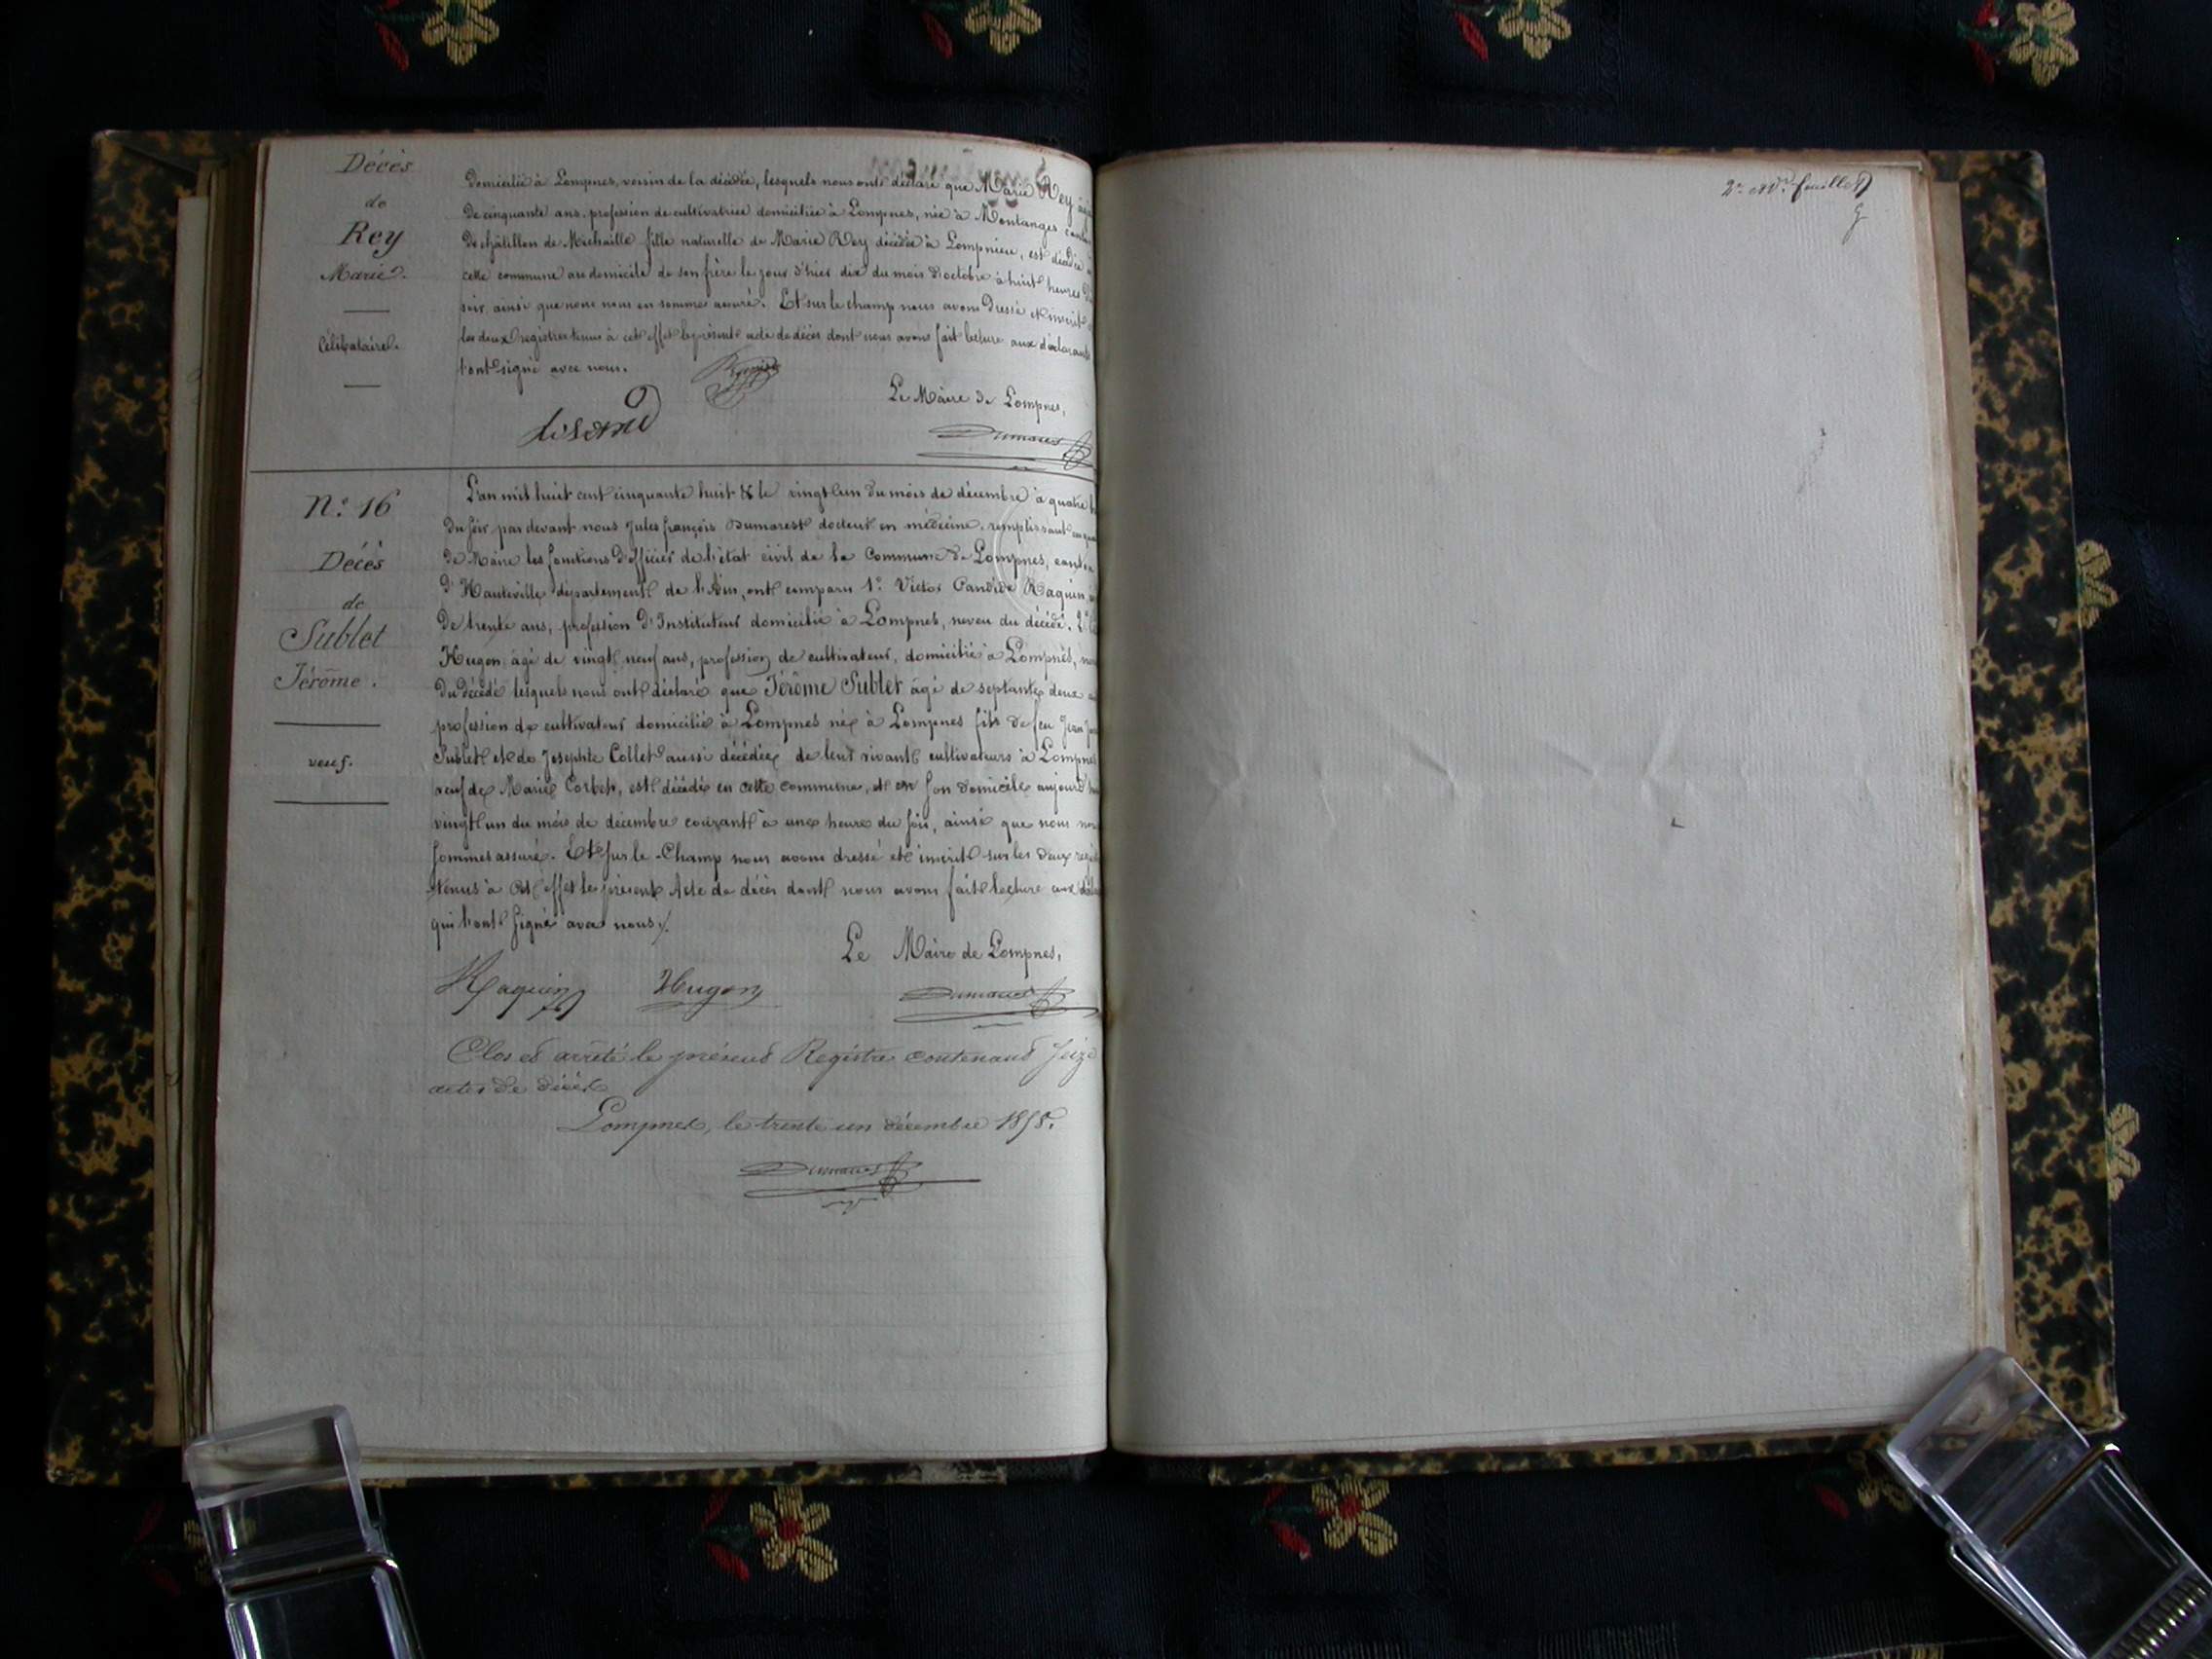 Décès
de
Rey
Marie.
Célibataire.
domicilié à Lompnes, voisin de la décédée, lesquels nous ont déclaré que Marie Rey
de cinquante ans, profession de cultivatrice domiciliée à Lompnes, née à Montanges
de châtillon de Michaille fille naturelle de Marie Rey décédée à Lompnieu, est décédée
cette commune au domicile de son frère le jour d'hier dix du mois d'octobre à huit heures
soir ainsi que nous nous en sommes assuré. Et sur le champ nous avons dressé et inscrit
les deux registres tenus à cet effet le présent acte de décès dont nous avons fait lecture aux
l'ont signé avec nous.
Le Maire de Lompnes,
Dumarest
N° 16
Décès
de
Sublet
Jérôme.
veuf.
L'an mil huit cent cinquante huit & le vingt un du mois de décembre à quatre
du soir par devant nous Jules françois Dumarest docteur en médecine, remplissant
de Maire les fonctions d'officier de l'état civil de la Commune de Lompnes, canton
d'Hauteville département de l'Ain, ont comparu 1° Victor Candide Raquin
de trente ans, profession d'Instituteur domicilié à Lompnes, neveu du décédé. 2°
Hugon âgé de vingt neuf ans, profession de cultivateur, domicilié à Lompnes,
du décédé lesquels nous ont déclaré que Jérôme Sublet âgé de septante deux
profession de cultivateur domicilié à Lompnes né à Lompnes fils de feu Jean
Sublet et de Josephte Collet aussi décédée de leur vivant cultivateurs à Lompnes
veuf de Marie Corbet, est décédé en cette commune, et en son domicile
vingt un du mois de décembre courant à une heure du soir, ainsi que nous
sommes assuré. Et sur le-Champ nous avons dressé et inscrit sur les deux
tenus à cet effet le présent Acte de décès dont nous avons fait lecture aux
qui l'ont signé avec nous./.
Le Maire de Lompnes,
Raquin Hugon Dumarest
Clos et arrêté le présent Registre contenant seize
actes de décès
Lompnes, le trente un décembre 1858.
Dumarest
2e et dr feuillet